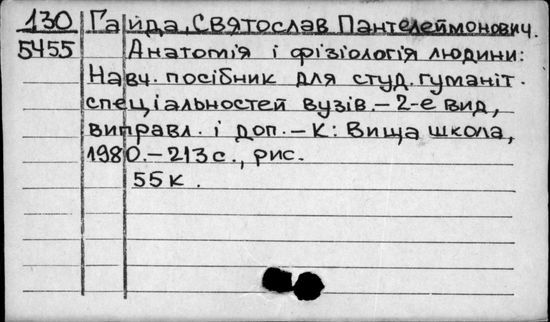 130 Гайда, Святослав Пантелеймонович.
5455 Анатомія і фізіологія людини:
Навч. посібник для студ. гуманіт.
спеціальностей вузів. – 2-е вид,
виправл. і доп. – К: Вища школа,
1980. – 213 с., рис.
55к.